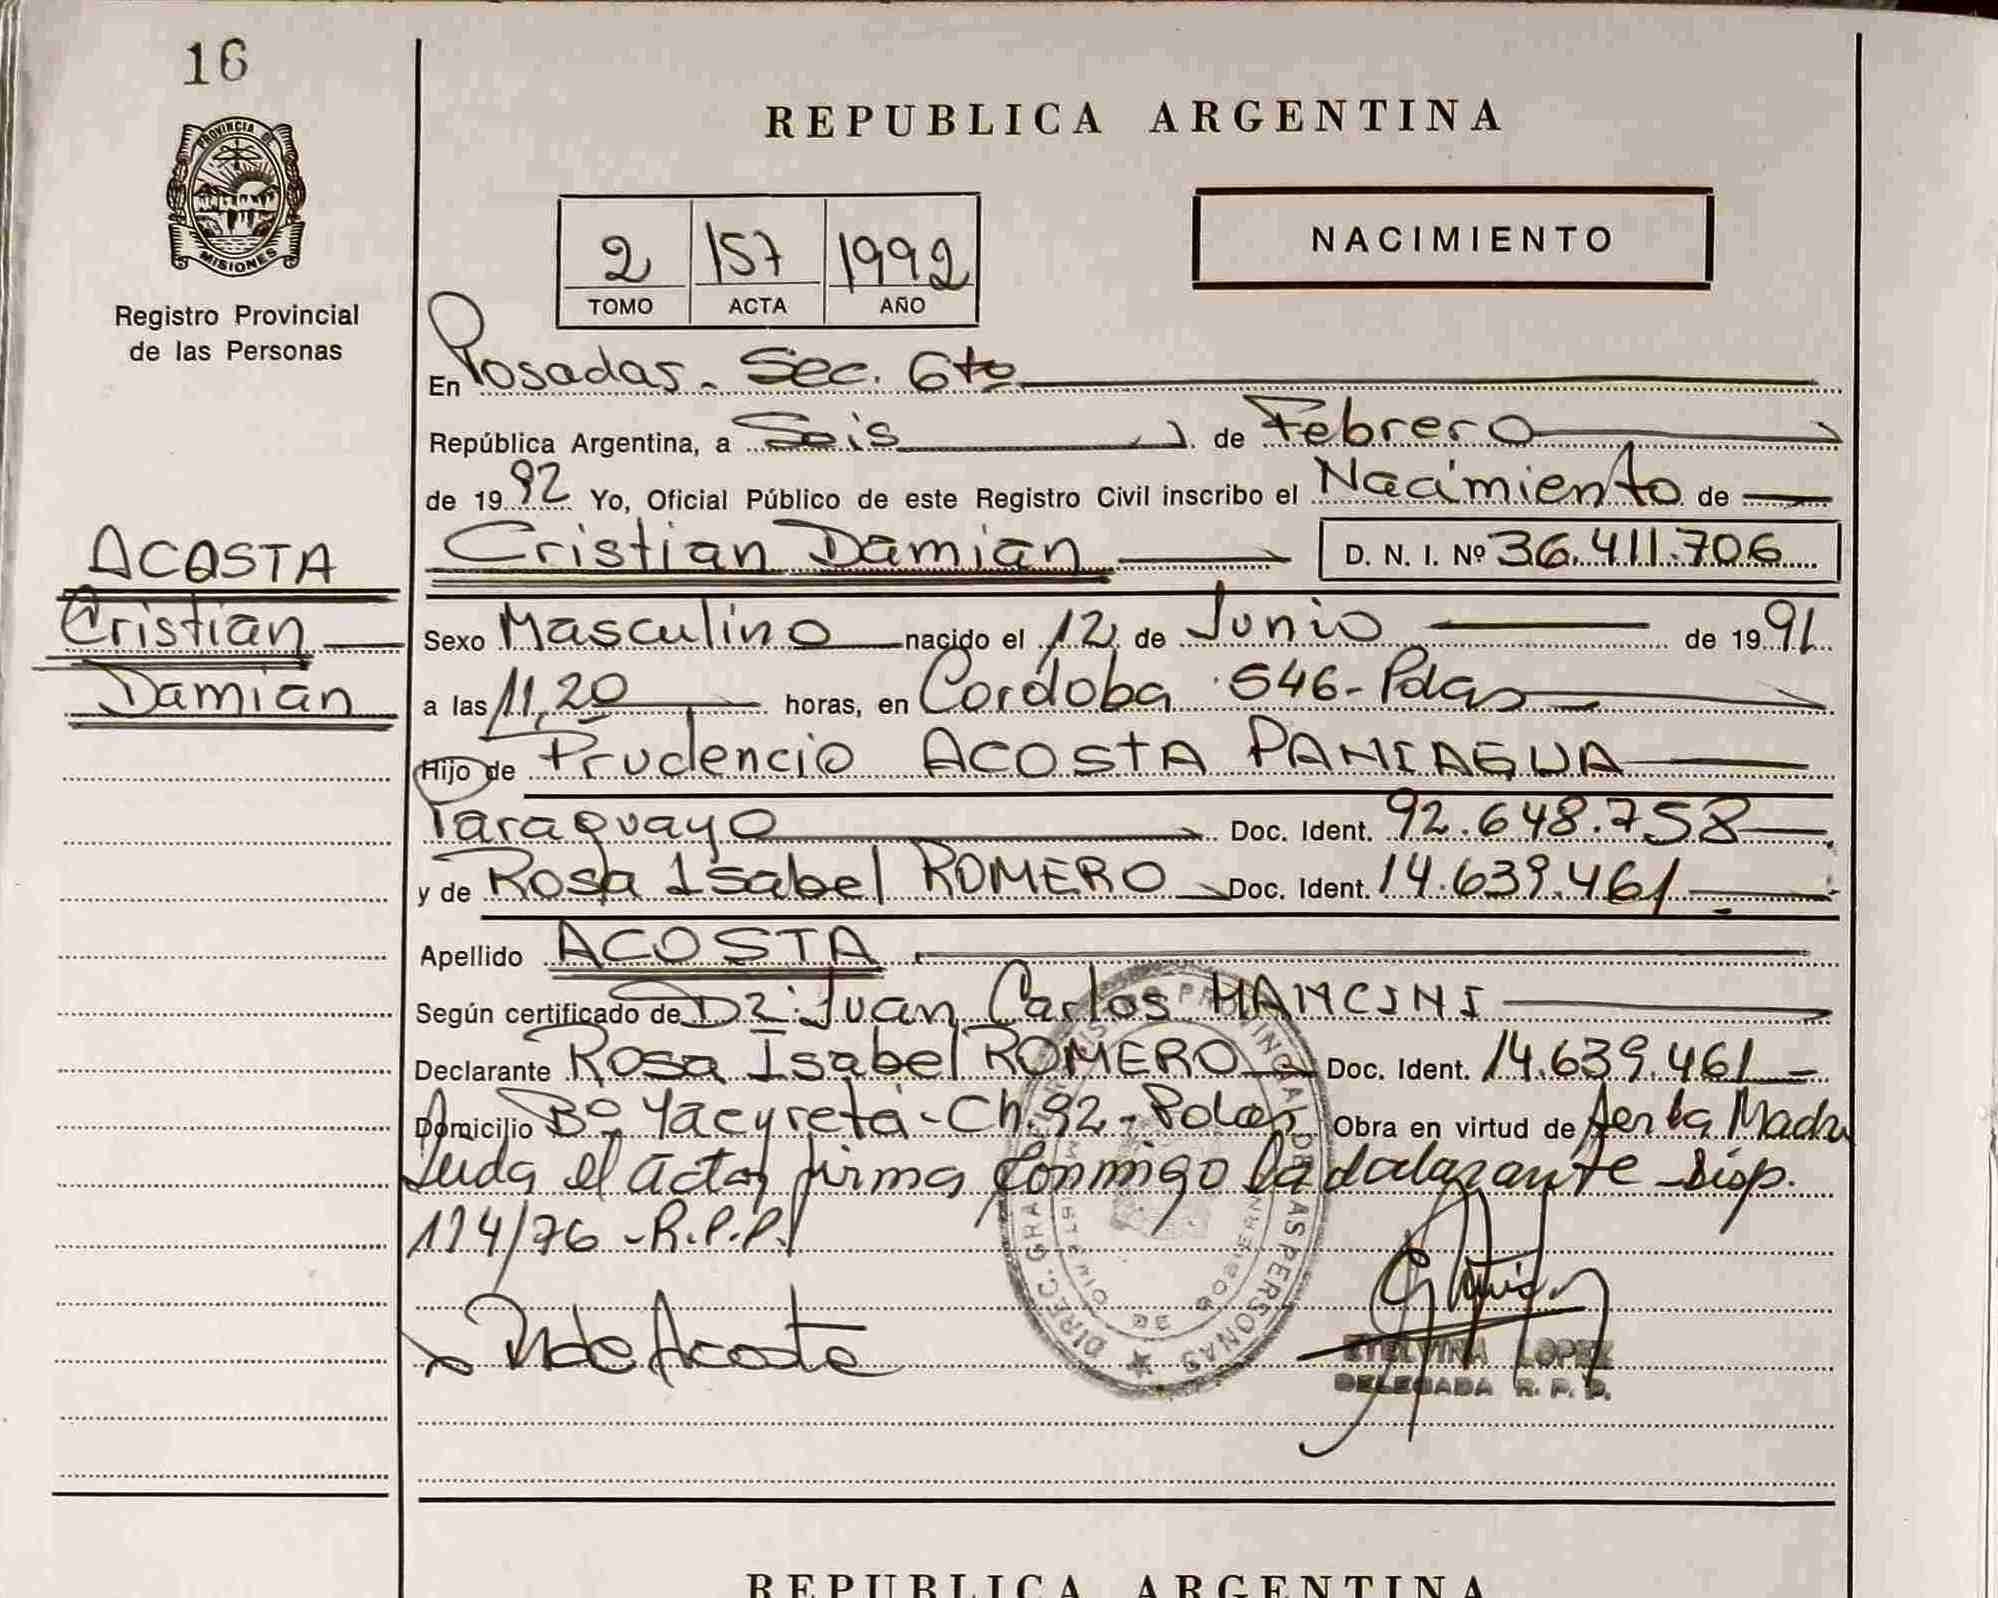 16
PROVINCIA DE
MISIONES
Registro Provincial
de las Personas
ACOSTA
Cristian
Damian
REPUBLICA ARGENTINA
2 157 1992
TOMO ACTA AÑO
NACIMIENTO
En Posadas - Sec. 6ta
República Argentina, a Seis de Febrero
de 1992 Yo, Oficial Público de este Registro Civil inscribo el Nacimiento de
Cristian Damian D. N. I. Nº 36.411.706
Sexo Masculino nacido el 12 de Junio de 1991
a las 11,20 horas, en Cordoba 546 - Pdas
Hijo de Prudencio ACOSTA PANIAGUA
Paraguayo Doc. Ident. 92.648.758
y de Rosa Isabel ROMERO Doc. Ident. 14.639.461
Apellido ACOSTA
Según certificado de Dr. Juan Carlos MANCINI
Declarante Rosa Isabel ROMERO Doc. Ident. 14.639.461
Domicilio Bº Yacyretá - Ch. 92 - Pdas Obra en virtud de ser la Madre
Leida el acta, firma conmigo la declarante - Disp.
114/76 - R.P.P.
R de Acosta
ETELVINA LOPEZ
DELEGADA R. P. P.
REPUBLICA ARGENTINA